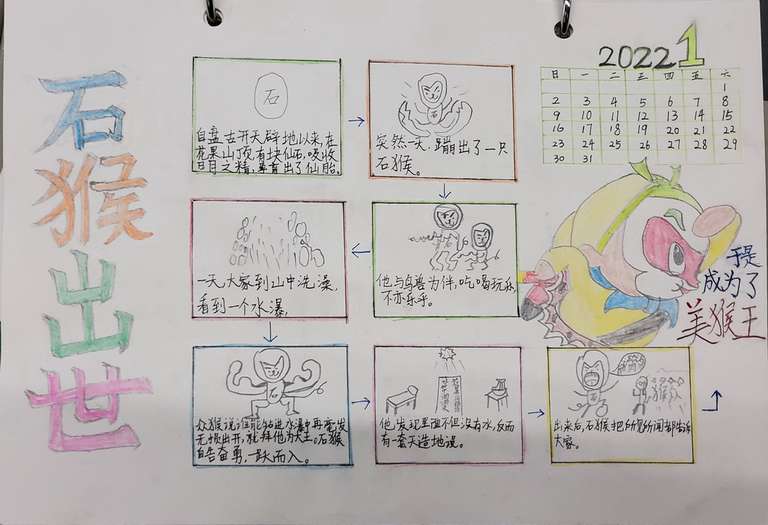 石
猴
出
世
石
自盘古开天辟地以来,在
花果山顶,有块仙石,吸收
日月之精,孕育出了仙胎。
突然一天,蹦出了一只
石猴。
他与鸟兽为伴,吃喝玩乐,
不亦乐乎。
一天,大家到山中洗澡,
看到一个水瀑,
石
众猴说:但能钻进水瀑中再
无损出开,就拜他为大王。石猴
自告奋勇,一跃而入。
他发现里面不但没有水,反而
有一套天造地设。
出来后,石猴把所见所闻都告诉
大家。
2022 1
日 一 二 三 四 五 六
1
2 3 4 5 6 7 8
9 10 11 12 13 14 15
16 17 18 19 20 21 22
23 24 25 26 27 28 29
30 31
于是
成为了
美猴王